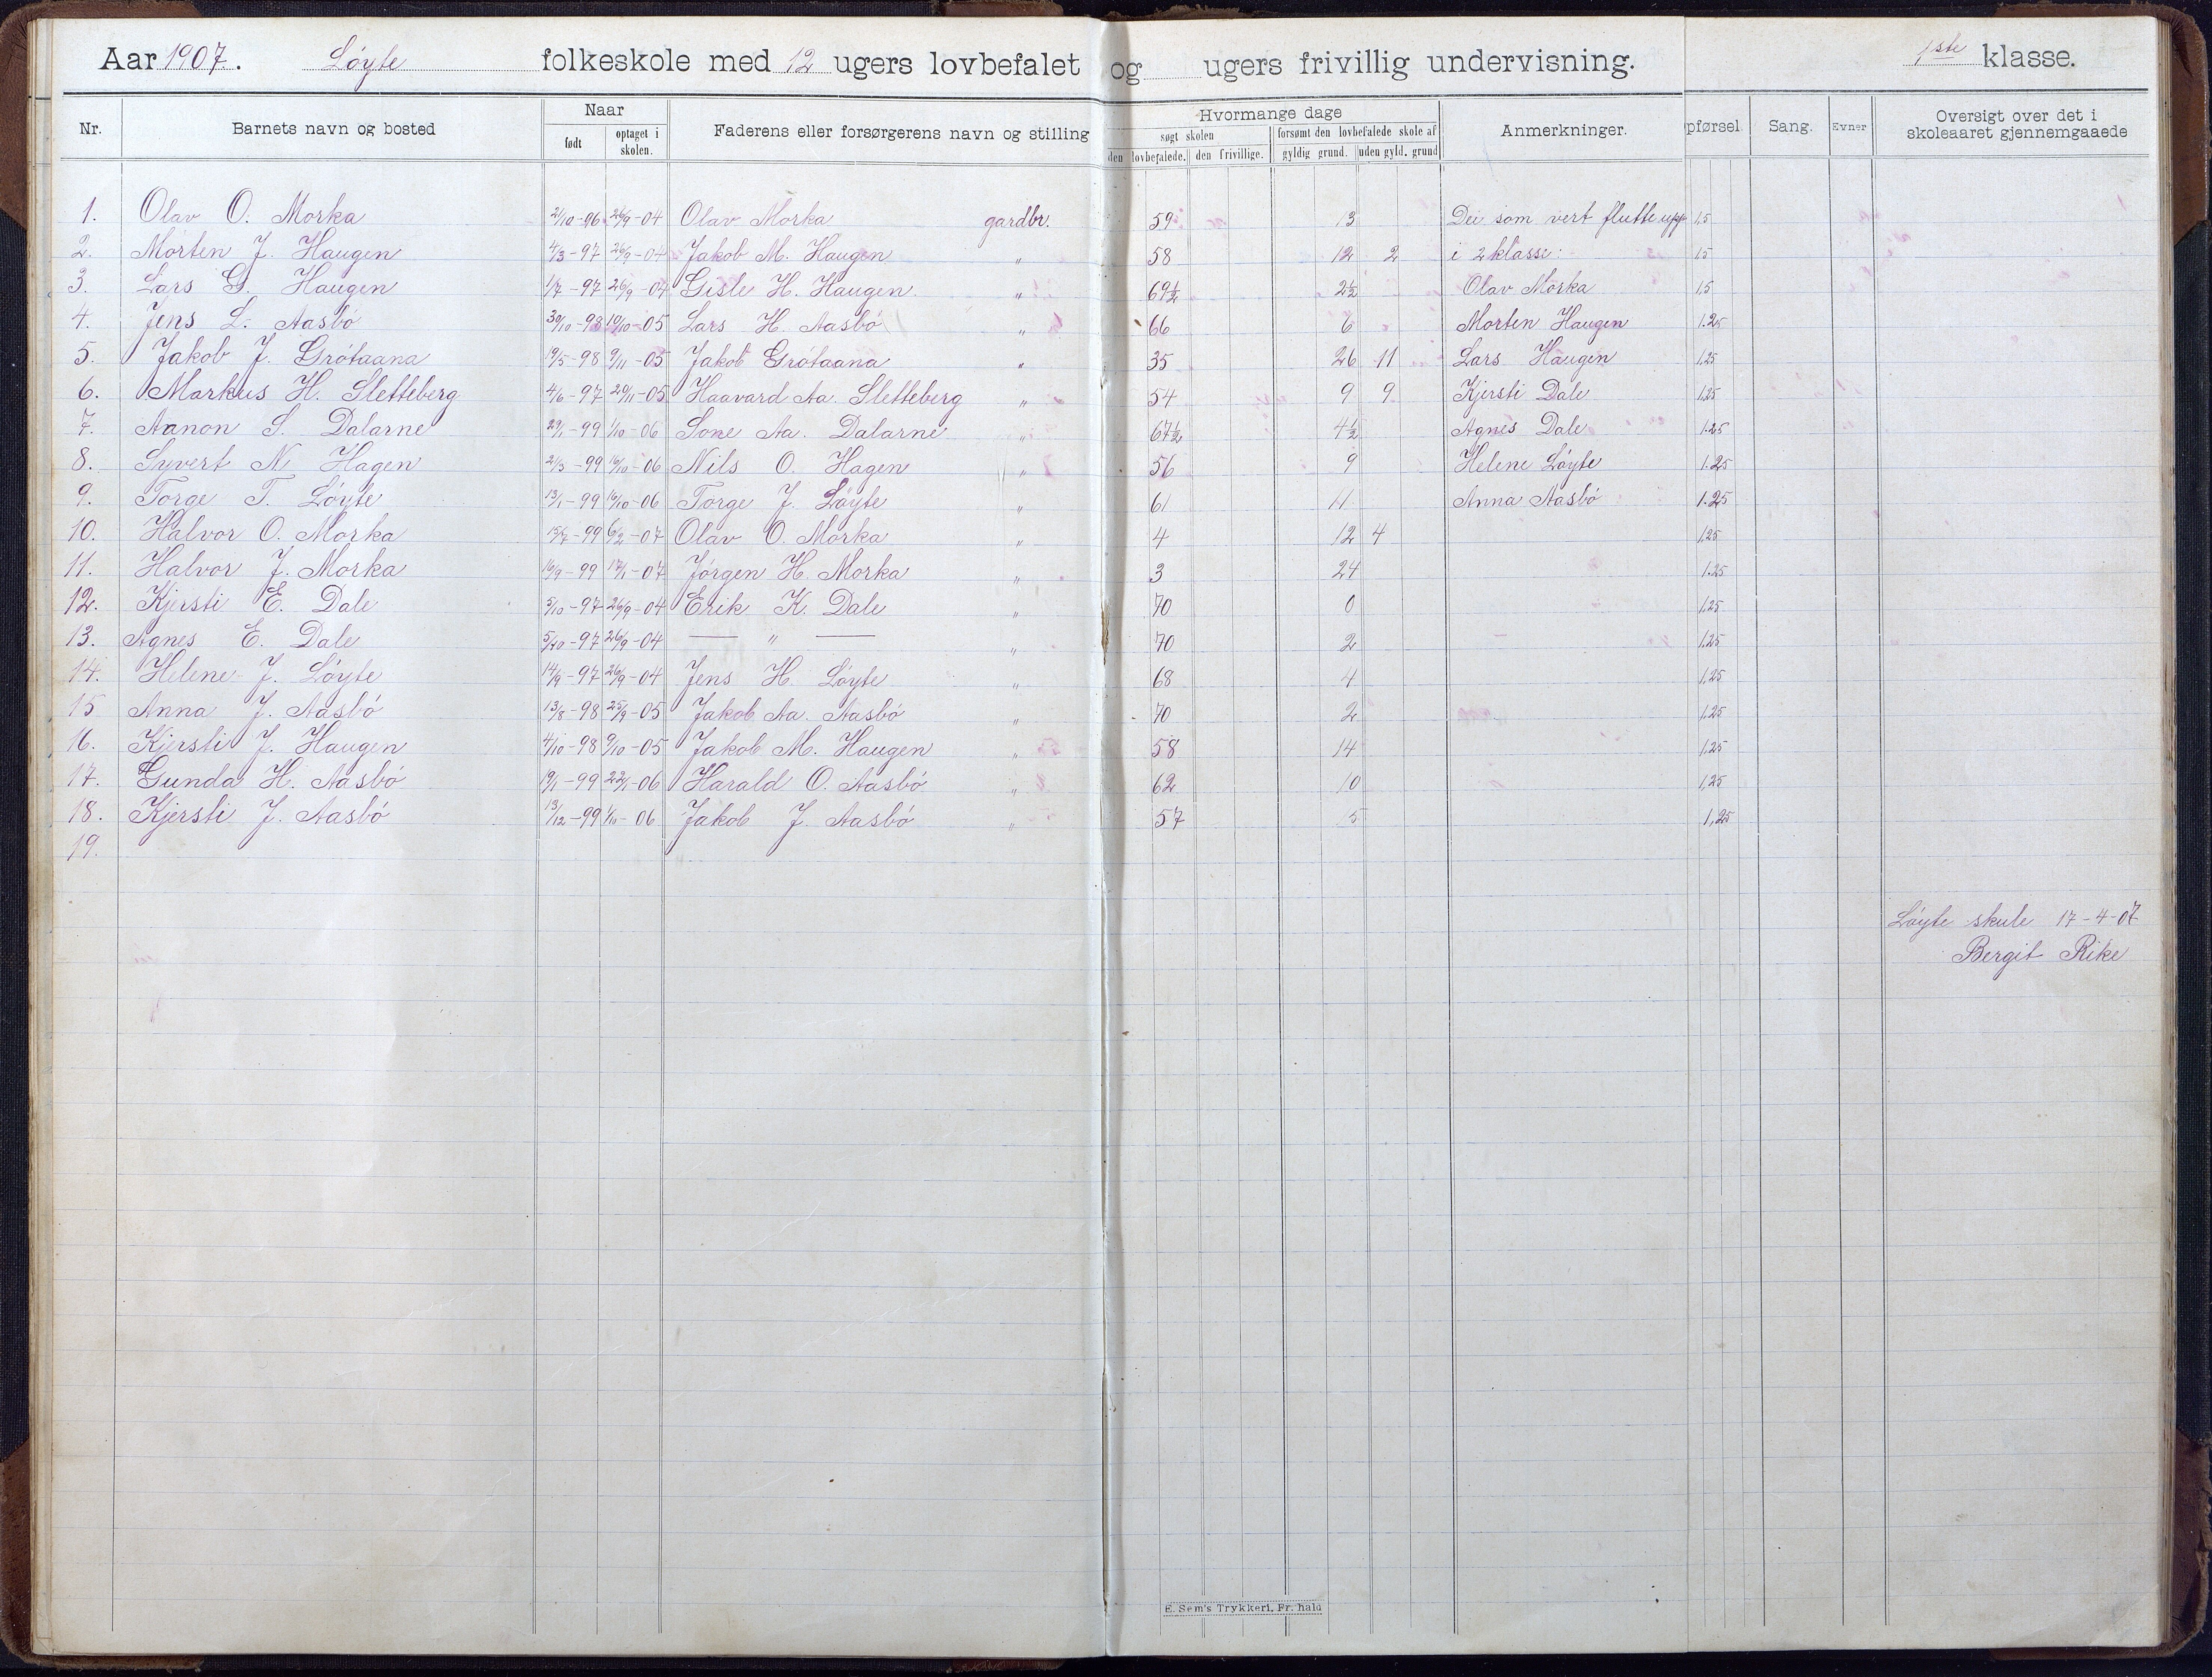 Aar 1907. Löyte folkeskole med 12 ugers lovbefalet og ugers frivillig undervisning. 1ste klasse.
Nr. Barnets navn og bosted Naar født optaget i skolen. Faderens eller forsørgerens navn og stilling Hvormange dage søgt skolen den lovbefalede. den frivillige. forsømt den lovbefalede skole af gyldig grund. uden gyld. grund Anmerkninger. pførsel Sang. Evner Oversigt over det i skoleaaret gjennemgaaede
1. Olav O. Morka 2/10-96 26/9-04 Olav Morka gardbr. 59 13 Dei som vert flutte upp 1,5
2. Morten J. Haugen 4/3-97 26/9-04 Jakob M. Haugen " 58 12 2 i 2 klasse: 1,5
3. Lars G. Haugen 1/7-97 26/9-04 Gisle H. Haugen. " 69½ 2½ Olav Morka 1,5
4. Jens L. Aasbö 30/10-98 10/10-05 Lars H. Aasbö " 66 6 Morten Haugen 1.25
5. Jakob J. Grötaana 19/5-98 9/11-05 Jakob Grötaana " 35 26 11 Lars Haugen 1,25
6. Markus H. Sletteberg 4/6-97 20/11-05 Haavard Aa. Sletteberg " 54 9 9 Kjersti Dale 1,25
7. Aanon S. Dalarne 29/1-99 1/10-06 Sone Aa. Dalarne " 67½ 4½ Agnes Dale 1.25
8. Syvert N. Hagen 2/3-99 16/10-06 Nils O. Hagen " 56 9 Helene Löyte 1.25
9. Torge T. Löyte 13/1-99 16/10-06 Torge J. Löyte " 61 11 Anna Aasbö 1.25
10. Halvor O. Morka 15/7-99 6/2-07 Olav O. Morka " 4 12 4 1,25
11. Halvor J. Morka 16/9-99 17/1-07 Jörgen H. Morka " 3 24 1.25
12. Kjersti E. Dale 5/10-97 26/9-04 Erik K. Dale " 70 0 1,25
13. Agnes E. Dale 5/10-97 26/9-04 — " — " 70 2 1,25
14. Helene J. Löyte 14/9-97 26/9-04 Jens H. Löyte " 68 4 1,25
15 Anna J. Aasbö 13/8-98 25/9-05 Jakob Aa. Aasbö " 70 2 1,25
16. Kjersti J. Haugen 4/10-98 9/10-05 Jakob M. Haugen " 58 14 1,25
17. Gunda H. Aasbö 19/1-99 22/1-06 Harald O. Aasbö " 62 10 1,25
18. Kjersti J. Aasbö 13/12-99 1/10-06 Jakob J. Aasbö " 57 5 1,25
19.
Löyte skule 17-4-07
Bergit Rike
E. Sem's Trykkeri, Fr. hald